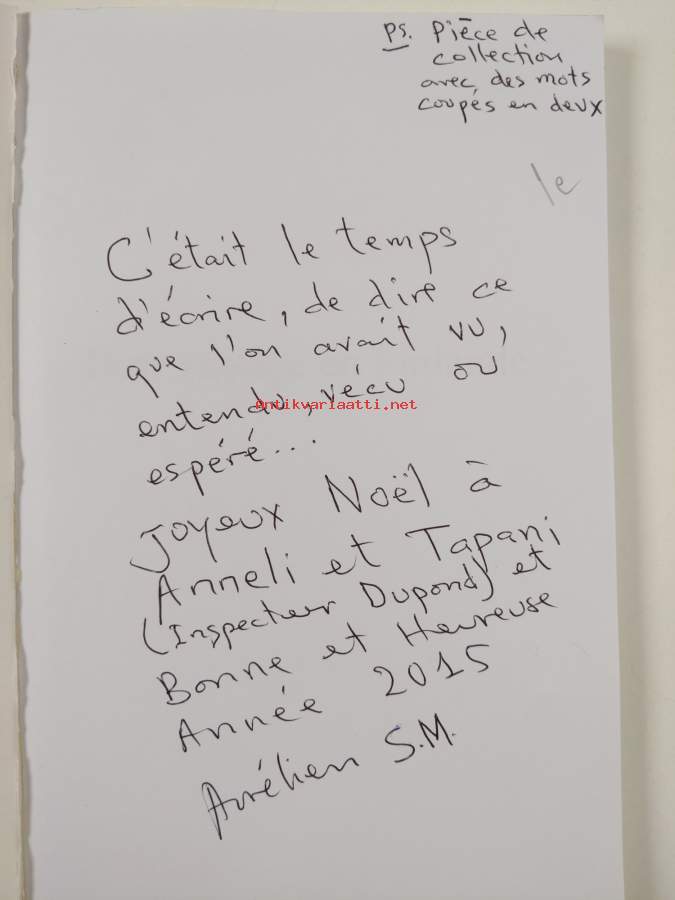 PS. Pièce de
collection
avec des mots
coupés en deux
le
C'était le temps
d'écrire, de dire ce
que l'on avait vu,
entendu, vécu ou
antikvariaatti.net
espéré...
Joyeux Noël à
Anneli et Tapani
(Inspecteur Dupond) et
Bonne et Heureuse
Année 2015
Aurélien S.M.